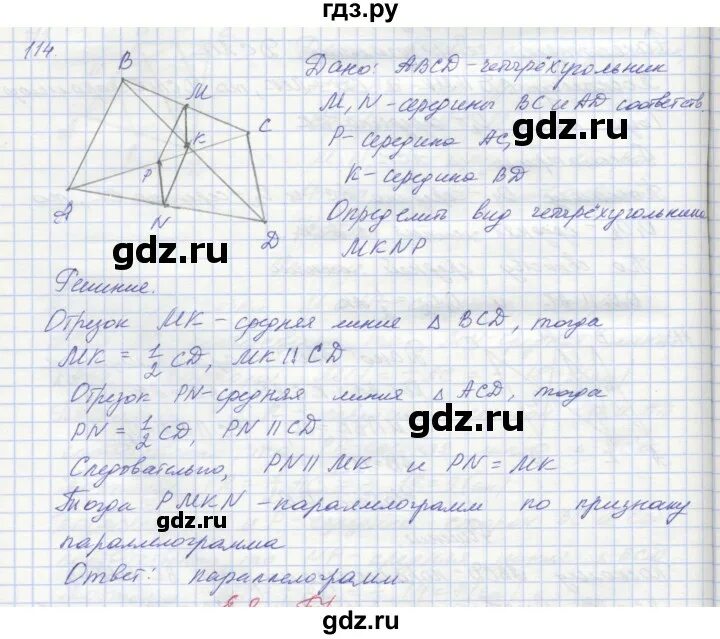 гдз.ру
114.
B
M
C
K
P
A
N
D
Дано: ABCD - четырёхугольник
M, N - середины BC и AD соответств.
P - середина AC,
K - середина BD
Определить вид четырёхугольника
MKNP
gdz.ru
gdz.ru
Решение.
Отрезок MK - средняя линия △ BCD, тогда
MK = 1/2 CD, MK || CD
gdz.ru
Отрезок PN - средняя линия △ ACD, тогда
PN = 1/2 CD, PN || CD
gdz.ru
Следовательно, PN || MK и PN = MK
Тогда PMKN - параллелограмм по признаку
gdz.ru
параллелограмма
Ответ: параллелограмм
gdz.ru
gdz.ru